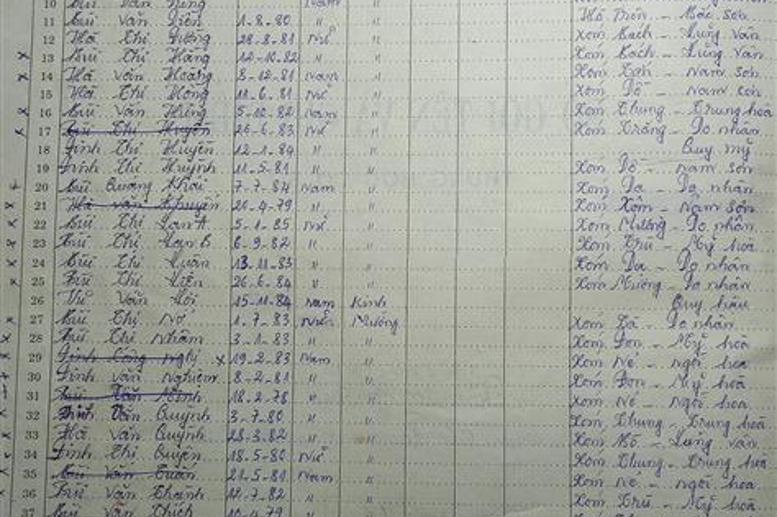 10 Bùi Văn Nam
11 Bùi Văn Diễn 1-8-80 " " Hồ Trôn - Bắc Sơn
12 Hà Thị Dương 28-8-81 Nữ " Xóm Bách - Lũng Vân
13 Bùi Thị Hằng 12-10-82 " " Xóm Bách - Lũng Vân
14 Hà Văn Hoàng 8-12-81 Nam " Xóm - Nam Sơn
15 Hà Thị Hồng 11-6-81 Nữ " Xóm Dồ - Nam Sơn
16 Bùi Văn Hùng 5-10-82 Nam " Xóm Chung - Trung hòa
17 Bùi Thị Huyền 26-6-83 Nữ " Xóm Trăng - Do nhân
18 Đinh Thị Huyền 12-1-84 " " Quy mỹ
19 Đinh Thị Huỳnh 11-5-81 " " Xóm Dồ - Nam Sơn
20 Bùi Quang Khải 7-7-84 Nam " Xóm Da - Do nhân
21 Hà Văn 20-4-79 " " Xóm Xôm - Nam Sơn
22 Bùi Thị Lan A 5-1-85 Nữ " Xóm Mường - Do nhân
23 Bùi Thị Lan B 6-9-82 " " Xóm Trù - Mỹ hoà
24 Bùi Thị Luân 13-11-83 " " Xóm Da - Do nhân
25 Bùi Thị Liên 26-6-84 " " Xóm Mường - Do nhân
26 Vũ Văn Lợi 15-11-84 Nam Kinh Quy hậu
27 Bùi Thị Nơ 1-7-83 Nữ Mường Xóm Tà - Do nhân
28 Bùi Thị Nhâm 3-1-83 " " Xóm Đon - Mỹ hoà
29 Đinh Công Nghị x 19-2-83 Nam " Xóm Né - Ngòi hoa
30 Đinh Văn Nghiệm 8-2-81 " " Xóm Đon - Mỹ hoà
31 Bùi Văn Ninh 18-2-78 " " Xóm Né - Ngòi hoa
32 Đinh Văn Quỳnh 3-7-80 " " Xóm Chung - Trung hoà
33 Hà Văn Quỳnh 28-3-82 " " Xóm Bồ - Lũng Vân
34 Đinh Thị Quyên 18-5-80 Nữ " Xóm Chung - Trung hoà
35 Bùi Văn Tuấn 21-5-81 Nam " Xóm Né - Ngòi hoa
36 Bùi Văn Thành 12-7-82 " " Xóm Trù - Mỹ hoà
37 Bùi Văn Thích 10-4-79 " "